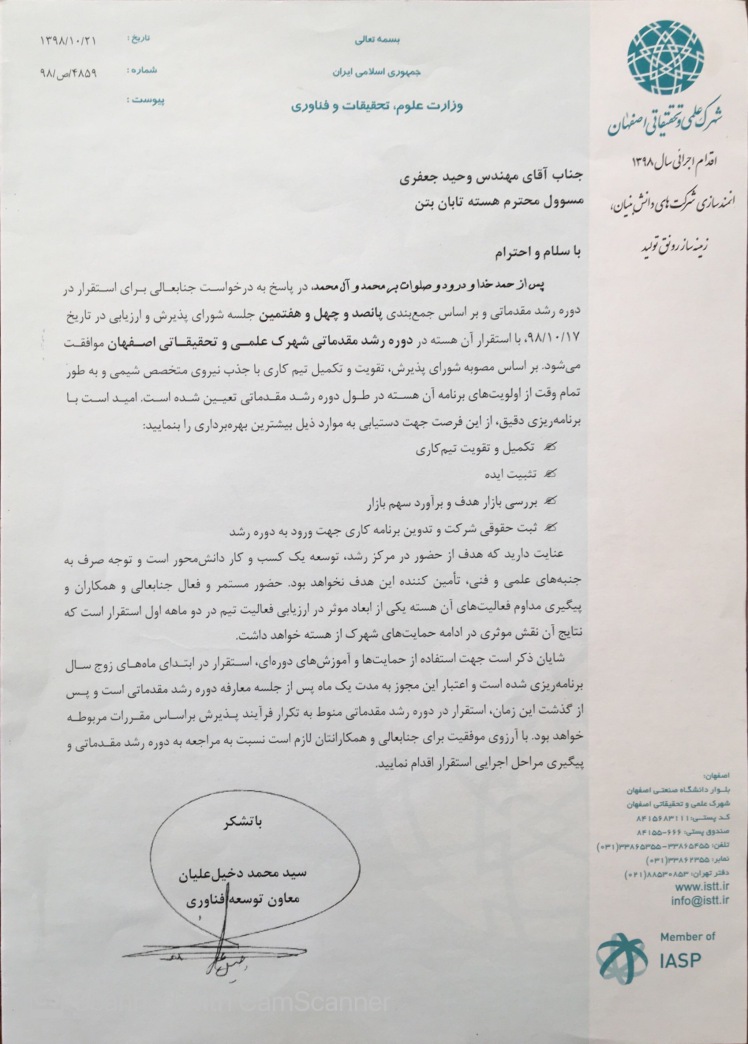 بسمه تعالی
جمهوری اسلامی ایران
وزارت علوم، تحقیقات و فناوری
تاریخ: ۱۳۹۸/۱۰/۲۱
شماره: ۹۸/ص/۴۸۵۹
پیوست:
شهرک علمی و تحقیقاتی اصفهان
اقدام اجرائی سال ۱۳۹۸
توانمندسازی شرکت‌های دانش‌بنیان،
زمینه‌ساز رونق تولید
جناب آقای مهندس وحید جعفری
مسوول محترم هسته تابان بتن
با سلام و احترام
پس از حمد خدا و درود و صلوات بر محمد و آل محمد، در پاسخ به درخواست جنابعالی برای استقرار در
دوره رشد مقدماتی و بر اساس جمع‌بندی پانصد و چهل و هفتمین جلسه شورای پذیرش و ارزیابی در تاریخ
۹۸/۱۰/۱۷، با استقرار آن هسته در دوره رشد مقدماتی شهرک علمی و تحقیقاتی اصفهان موافقت
می‌شود. بر اساس مصوبه شورای پذیرش، تقویت و تکمیل تیم کاری با جذب نیروی متخصص شیمی و به طور
تمام وقت از اولویت‌های برنامه آن هسته در طول دوره رشد مقدماتی تعیین شده است. امید است با
برنامه‌ریزی دقیق، از این فرصت جهت دستیابی به موارد ذیل بیشترین بهره‌برداری را بنمایید:
تکمیل و تقویت تیم کاری
تثبیت ایده
بررسی بازار هدف و برآورد سهم بازار
ثبت حقوقی شرکت و تدوین برنامه کاری جهت ورود به دوره رشد
عنایت دارید که هدف از حضور در مرکز رشد، توسعه یک کسب و کار دانش‌محور است و توجه صرف به
جنبه‌های علمی و فنی، تأمین کننده این هدف نخواهد بود. حضور مستمر و فعال جنابعالی و همکاران و
پیگیری مداوم فعالیت‌های آن هسته یکی از ابعاد موثر در ارزیابی فعالیت تیم در دو ماهه اول استقرار است که
نتایج آن نقش موثری در ادامه حمایت‌های شهرک از هسته خواهد داشت.
شایان ذکر است جهت استفاده از حمایت‌ها و آموزش‌های دوره‌ای، استقرار در ابتدای ماه‌های زوج سال
برنامه‌ریزی شده است و اعتبار این مجوز به مدت یک ماه پس از جلسه معارفه دوره رشد مقدماتی است و پس
از گذشت این زمان، استقرار در دوره رشد مقدماتی منوط به تکرار فرآیند پذیرش براساس مقررات مربوطه
خواهد بود. با آرزوی موفقیت برای جنابعالی و همکارانتان لازم است نسبت به مراجعه به دوره رشد مقدماتی و
پیگیری مراحل اجرایی استقرار اقدام نمایید.
باتشکر
سید محمد دخیل‌علیان
معاون توسعه فناوری
اصفهان:
بلوار دانشگاه صنعتی اصفهان
شهرک علمی و تحقیقاتی اصفهان
کد پستی: ۸۴۱۵۶۸۳۱۱۱
صندوق پستی: ۶۶۶-۸۴۱۵۵
تلفن: ۳۳۸۶۵۴۵۵-۳۳۸۶۵۳۵۵(۰۳۱)
نمابر: ۳۳۸۶۲۳۵۵(۰۳۱)
دفتر تهران: ۸۸۵۳۰۸۵۳(۰۲۱)
www.istt.ir
info@istt.ir
Member of
IASP
CamScanner